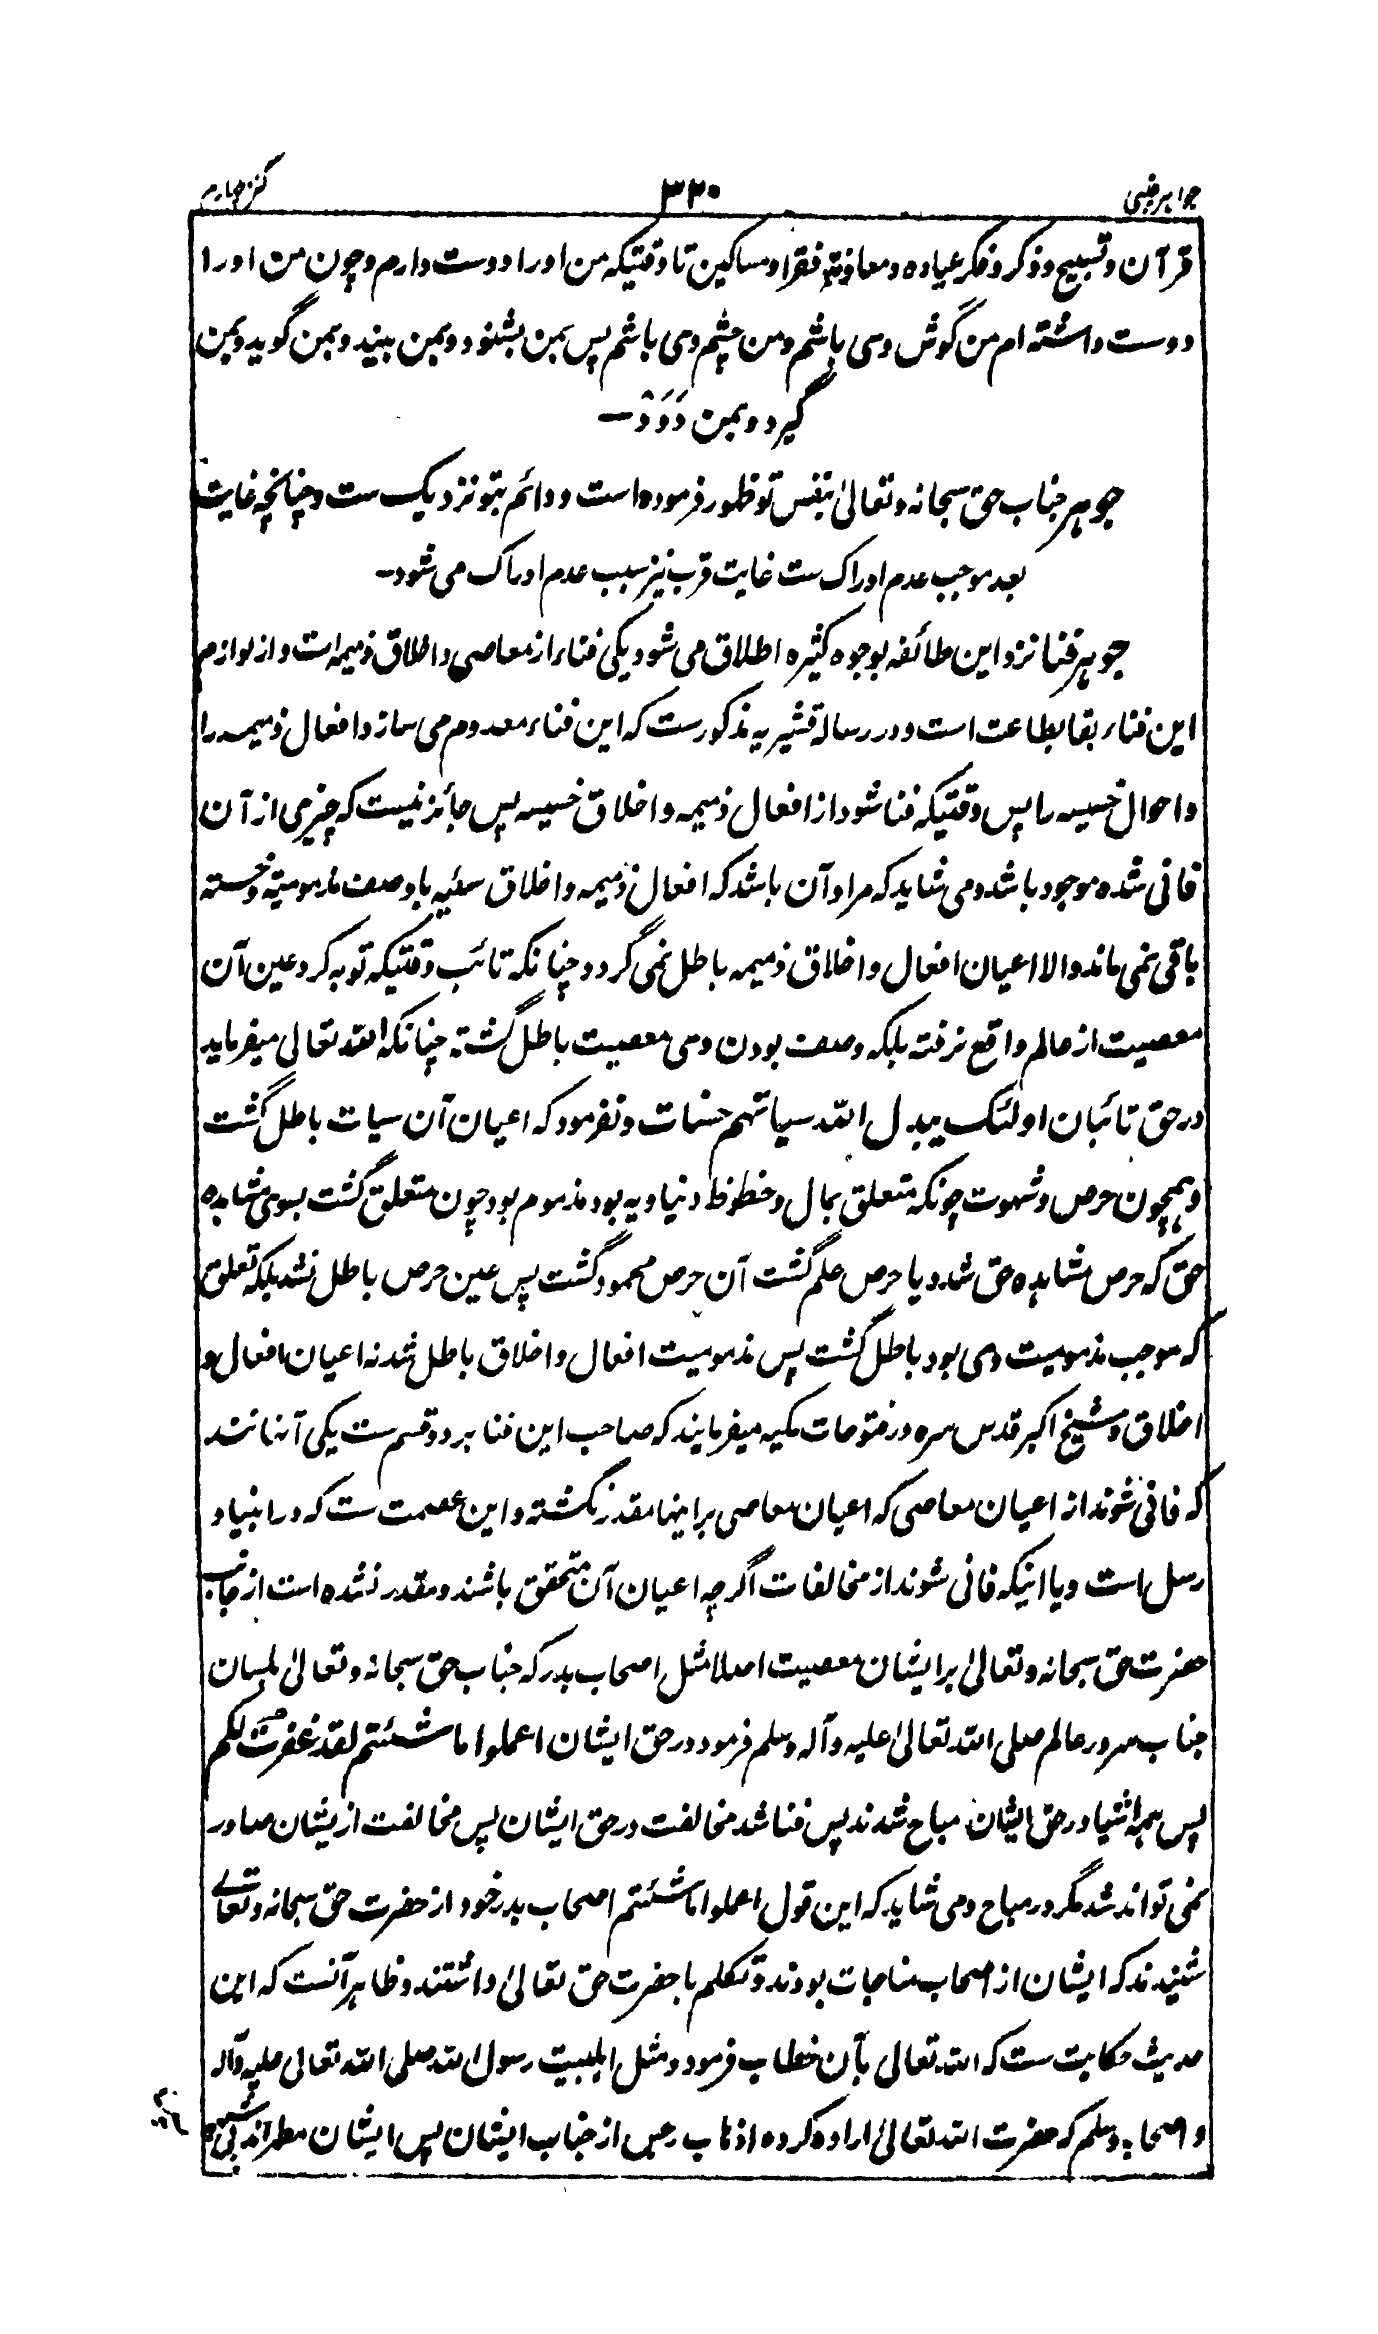 جواہر غیبی ۳۲۰ کنز چہارم
قرآن و تسبیح و ذکر و فکر عیاده و معاونۃ فقرا و مساکین تا وقتیکہ من اورا دوست دارم و چون من اورا
دوست داشتہ ام من گوش وی باشم و من چشم وی باشم پس بمن بشنود و بمن بیند و بمن گوید و بمن
گیرد و بمن دَوَدْ —
جوہر جناب حق سبحانہ و تعالیٰ بنفس تو ظہور فرموده است و دائم بتو نزدیک ست و چنانچہ غایت
بعد موجب عدم ادراک ست غایت قرب نیز سبب عدم ادراک می شود –
جوہر فنا نزد این طائفہ بوجوه کثیره اطلاق می شود یکی فناء از معاصی و اخلاق ذمیمہ است و از لوازم
این فناء بقا بطاعت است و در رسالہ قشیریہ مذکورست کہ این فناء معدوم می سازد افعال ذمیمہ را
و احوال خسیسہ را پس وقتیکہ فنا شود از افعال ذمیمہ و اخلاق خسیسہ پس جائز نیست کہ چیزی از آن
فانی شده موجود باشد و می شاید کہ مراد آن باشد کہ افعال ذمیمہ و اخلاق سئیہ با وصف مذمومیتہ و خستہ
باقی نمی ماند و الا اعیان افعال و اخلاق ذمیمہ باطل نمی گردد چنانکہ تائب وقتیکہ توبہ کرد عین آن
معصیت از عالم واقع نرفتہ بلکہ وصف بودن وی معصیت باطل گشتہ چنانکہ اللہ تعالی میفرماید
در حق تائبان اولئک یبدل اللہ سیاتہم حسنات و نفرمود کہ اعیان آن سیات باطل گشت
و ہمچون حرص و شہوت چونکہ متعلق بمال و حظوظ دنیاویہ بود مذموم بود چون متعلق گشت بسوی مشاہده
حق کہ حرص مشاہده حق شد و یا حرص علم گشت آن حرص محمود گشت پس عین حرص باطل نشد بلکہ تعلق
کہ موجب مذمومیت وی بود باطل گشت پس مذمومیت افعال و اخلاق باطل شد نہ اعیان افعال و
اخلاق و شیخ اکبر قدس سره در فتوحات مکیہ میفرمایند کہ صاحب این فنا بر دو قسم ست یکی آنہانند
کہ فانی شوند از اعیان معاصی کہ اعیان معاصی بر اینہا مقدر نگشتہ و این عصمت ست کہ در انبیا و
رسل است و یا اینکہ فانی شوند از مخالفات اگرچہ اعیان آن متحقق باشند و مقدر نشده است از جانب
حضرت حق سبحانہ و تعالیٰ بر ایشان معصیت اصلا مثل اصحاب بدر کہ جناب حق سبحانہ و تعالیٰ بلسان
جناب سرور عالم صلی اللہ تعالیٰ علیہ و آلہ وسلم فرمود در حق ایشان اعملوا ما شئتم لقد غفرت لکم
پس ہمہ اشیا در حق ایشان مباح شدند پس فنا شد مخالفت در حق ایشان پس مخالفت از یشان صادر
نمی تواند شد مگر در مباح و می شاید کہ این قول اعملوا ما شئتم اصحاب بدر خود از حضرت حق سبحانہ و تعالے
شنیدند کہ ایشان از اصحاب مناجات بودند و تکلم با حضرت حق تعالیٰ داشتند و ظاہر آنست کہ این
حدیث حکایت ست کہ اللہ تعالی بآن خطاب فرمود و مثل اہلبیت رسول اللہ صلی اللہ تعالی علیہ و آلہ
و اصحابہ وسلم کہ حضرت اللہ تعالیٰ اراده کرده اذہاب رجس از جناب ایشان پس ایشان مطہر اند